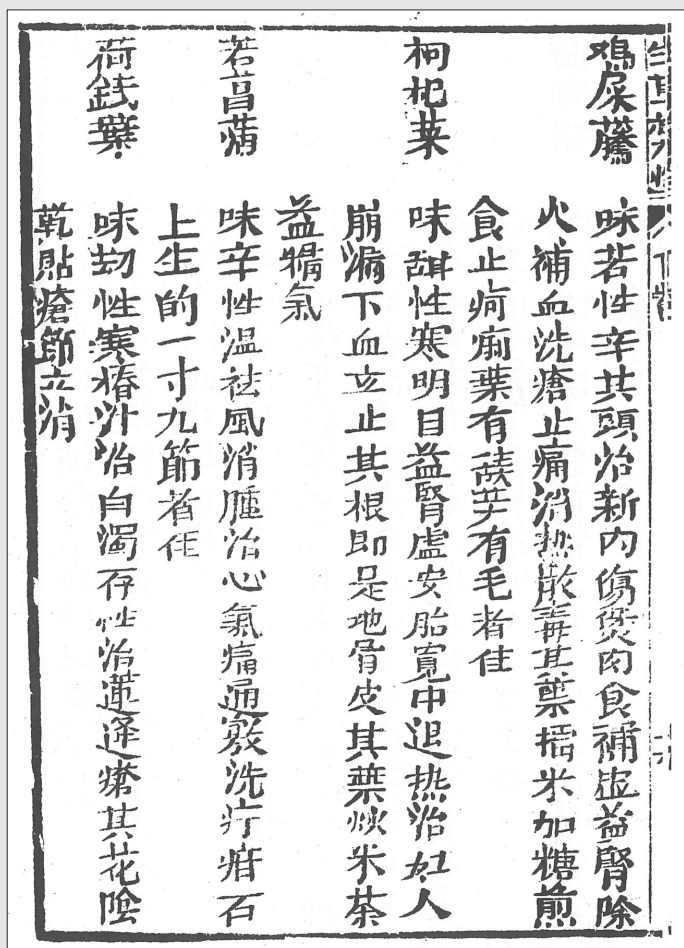 鳮屎藤
味苦性辛其頭治新內傷煲肉食補虛益腎除
火補血洗瘡止痛消热散毒其葉擂米加糖煎
食止痾痢葉有 芽有毛者佳
枸杞菜
味甜性寒明目益腎虛安胎寬中退热治妇人
崩漏下血立止其根即是地骨皮其葉炒米茶
益 氣
若菖蒲
味辛性温祛風消腫治心氣痛通竅洗疔疳石
上生的一寸九節者佳
荷錢葉
味劫性寒樁汁治白濁存性治蓮蓬瘡其花陰
乾貼瘡節立消